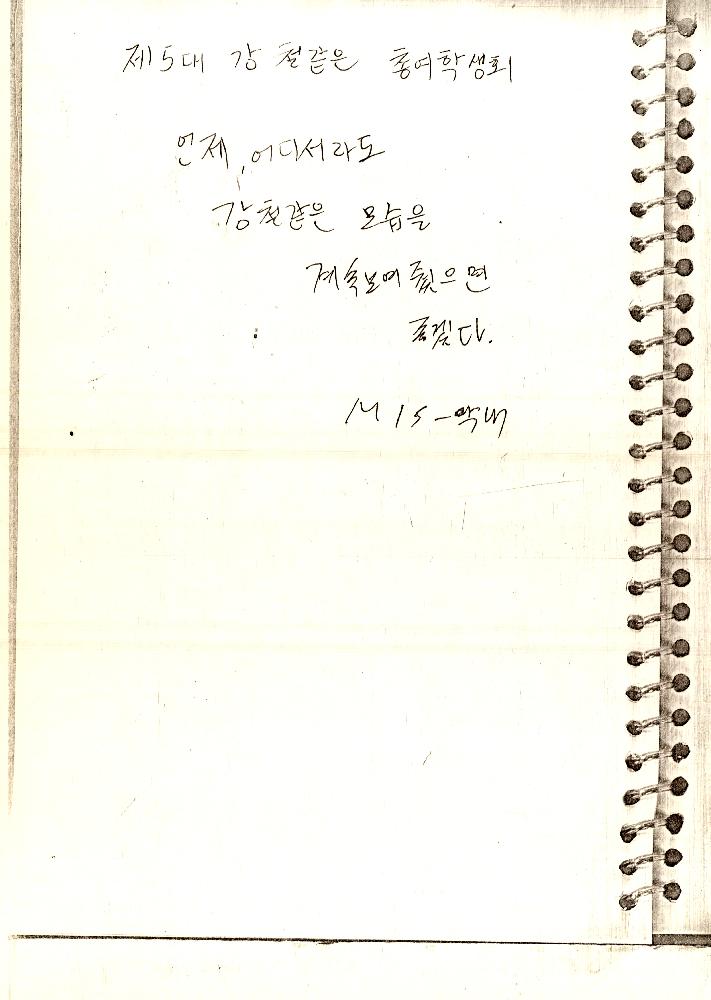 제5대 강철같은 총여학생회
언제, 어디서라도
강철같은 모습을
계속보여 줬으면
좋겠다.
M15-막내